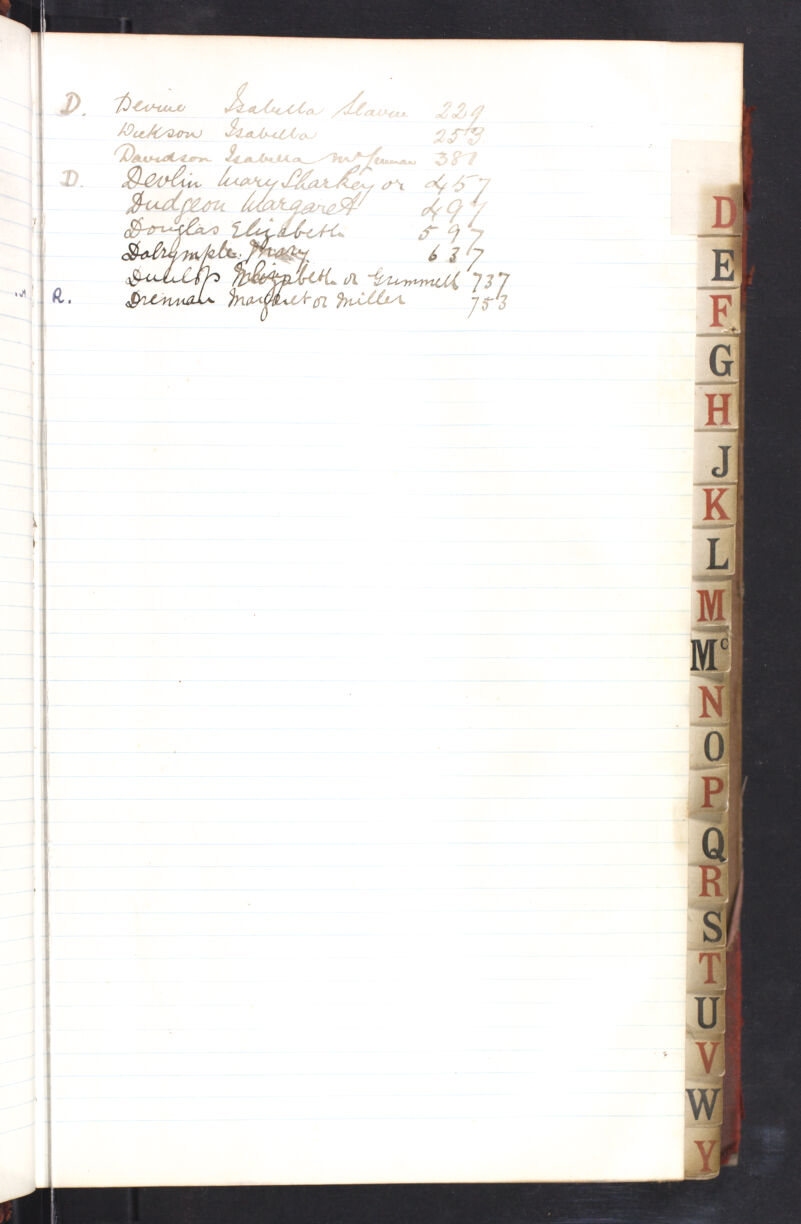 D. Devine Isabella Slavin 229
Dickson Isabella 253
Davidson Isabella 381
D. Devlin Mary Sharkey or 457
Dudgeon Margaret 497
Douglas Elizabeth 597
Dalrymple Mary 637
Dunlop Elizabeth or Grimmell 737
R. Drennan Margaret or Miller 753
D
E
F
G
H
J
K
L
M
Mc
N
O
P
Q
R
S
T
U
V
W
Y